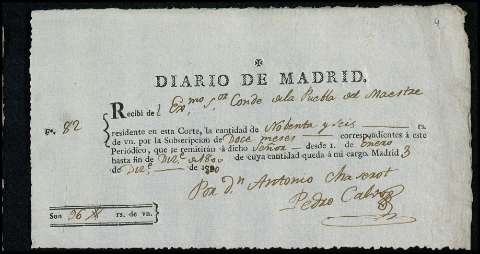 4
✠
DIARIO DE MADRID.
Recibí del Exmo. Sor. Conde de la Puebla del Maestre
Nº. 82
residente en esta Corte, la cantidad de Nobenta y seis rs.
de vn. por la Subscripcion de Doce meses correspondientes á este
Periódico, que se remitirán á dicho Señor desde 1. de Enero
hasta fin de Dizre. de 1800 de cuya cantidad queda á mi cargo. Madrid 3
de Dizre. de 1800
Por dn. Antonio
Pedro
Son 96 rs. de vn.